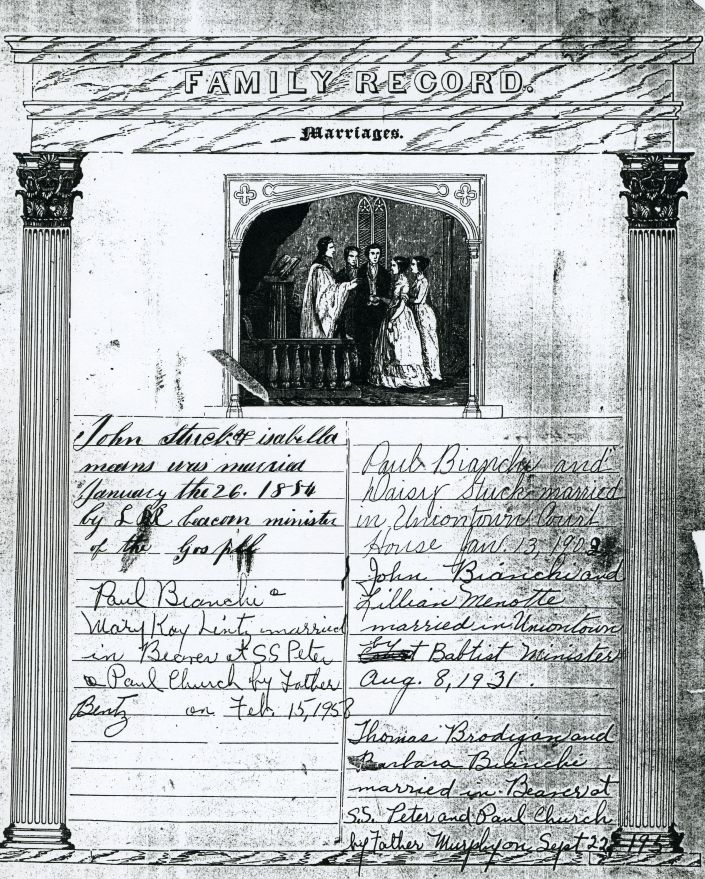 FAMILY RECORD.
Marriages.
John Stuck & isabella
means was married
January the 26. 1884
by L beacom minister
of the Gospell
Paul Bianchi &
Mary Kay Lintz married
in Beaver at SS Peter
& Paul Church by Father
Bentz on Feb. 15, 1958
Paul Bianchi and
Daisy Stuck married
in Uniontown Court
House Jan. 13, 1902
John Bianchi and
Lillian Menotte
married in Uniontown
by Babtist Minister
Aug. 8, 1931.
Thomas Brodigan and
Barbara Bianchi
married in Beaver at
S.S. Peter and Paul Church
by Father Murphy on Sept 22,